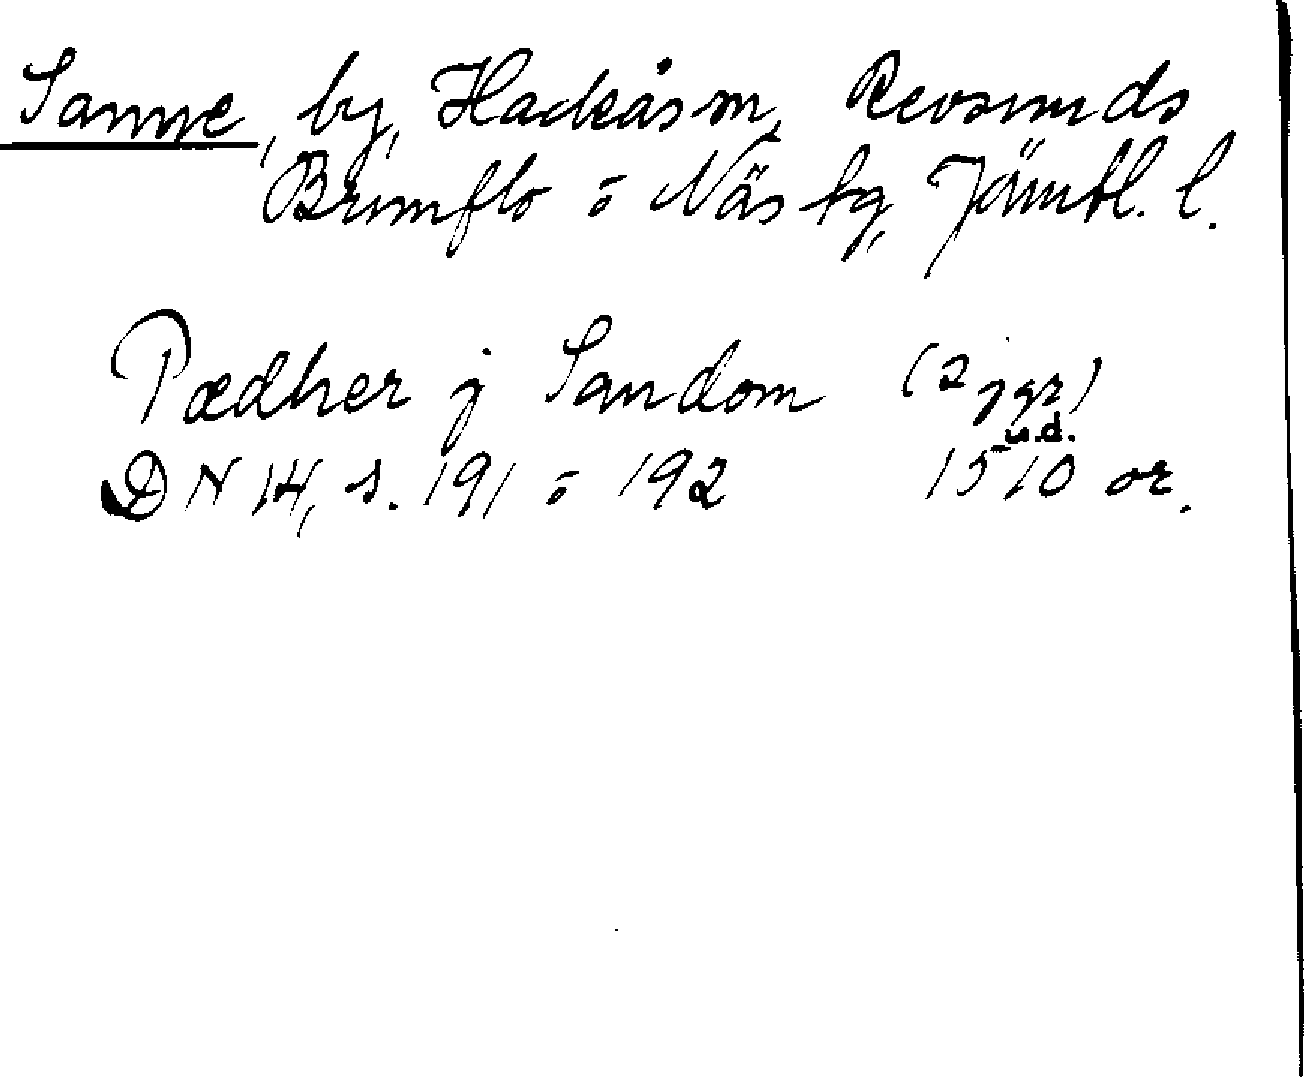 Sanne, by, Hackås sn, Revsunds
Brunflo o Näs tg, Jämtl. l.
Pædher j Sandom (2 ggr)
u.d.
DN 14, s. 191 o 192 1510 or.